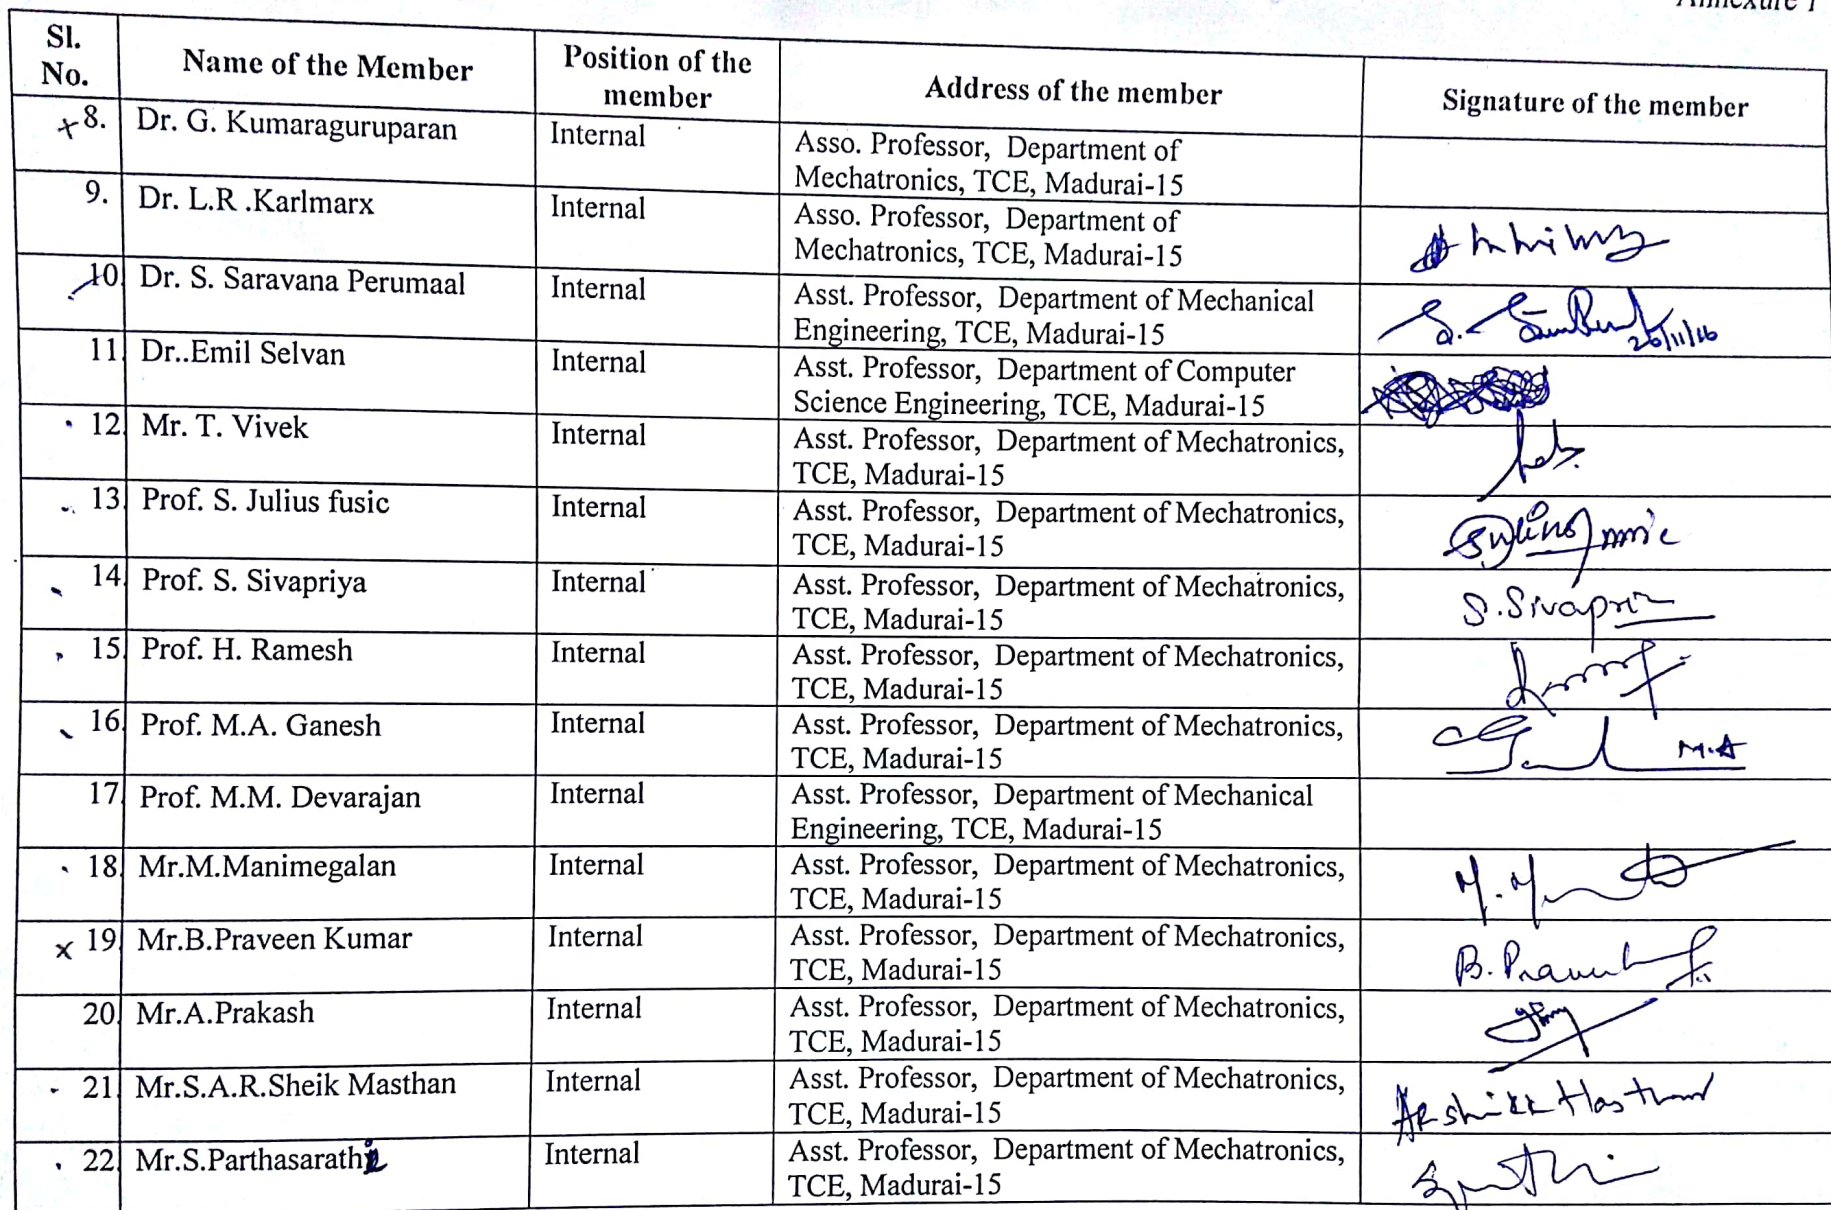 Annexure I
Sl. No. Name of the Member Position of the member Address of the member Signature of the member
x 8. Dr. G. Kumaraguruparan Internal Asso. Professor, Department of
Mechatronics, TCE, Madurai-15
9. Dr. L.R .Karlmarx Internal Asso. Professor, Department of
Mechatronics, TCE, Madurai-15
10 Dr. S. Saravana Perumaal Internal Asst. Professor, Department of Mechanical
Engineering, TCE, Madurai-15 26/11/16
11 Dr..Emil Selvan Internal Asst. Professor, Department of Computer
Science Engineering, TCE, Madurai-15
12 Mr. T. Vivek Internal Asst. Professor, Department of Mechatronics,
TCE, Madurai-15
13 Prof. S. Julius fusic Internal Asst. Professor, Department of Mechatronics,
TCE, Madurai-15
14 Prof. S. Sivapriya Internal Asst. Professor, Department of Mechatronics,
TCE, Madurai-15 S.Sivapriya
15 Prof. H. Ramesh Internal Asst. Professor, Department of Mechatronics,
TCE, Madurai-15
16 Prof. M.A. Ganesh Internal Asst. Professor, Department of Mechatronics,
TCE, Madurai-15 M.A
17 Prof. M.M. Devarajan Internal Asst. Professor, Department of Mechanical
Engineering, TCE, Madurai-15
18 Mr.M.Manimegalan Internal Asst. Professor, Department of Mechatronics,
TCE, Madurai-15
x 19 Mr.B.Praveen Kumar Internal Asst. Professor, Department of Mechatronics,
TCE, Madurai-15
20 Mr.A.Prakash Internal Asst. Professor, Department of Mechatronics,
TCE, Madurai-15
21 Mr.S.A.R.Sheik Masthan Internal Asst. Professor, Department of Mechatronics,
TCE, Madurai-15
22 Mr.S.Parthasarathi Internal Asst. Professor, Department of Mechatronics,
TCE, Madurai-15